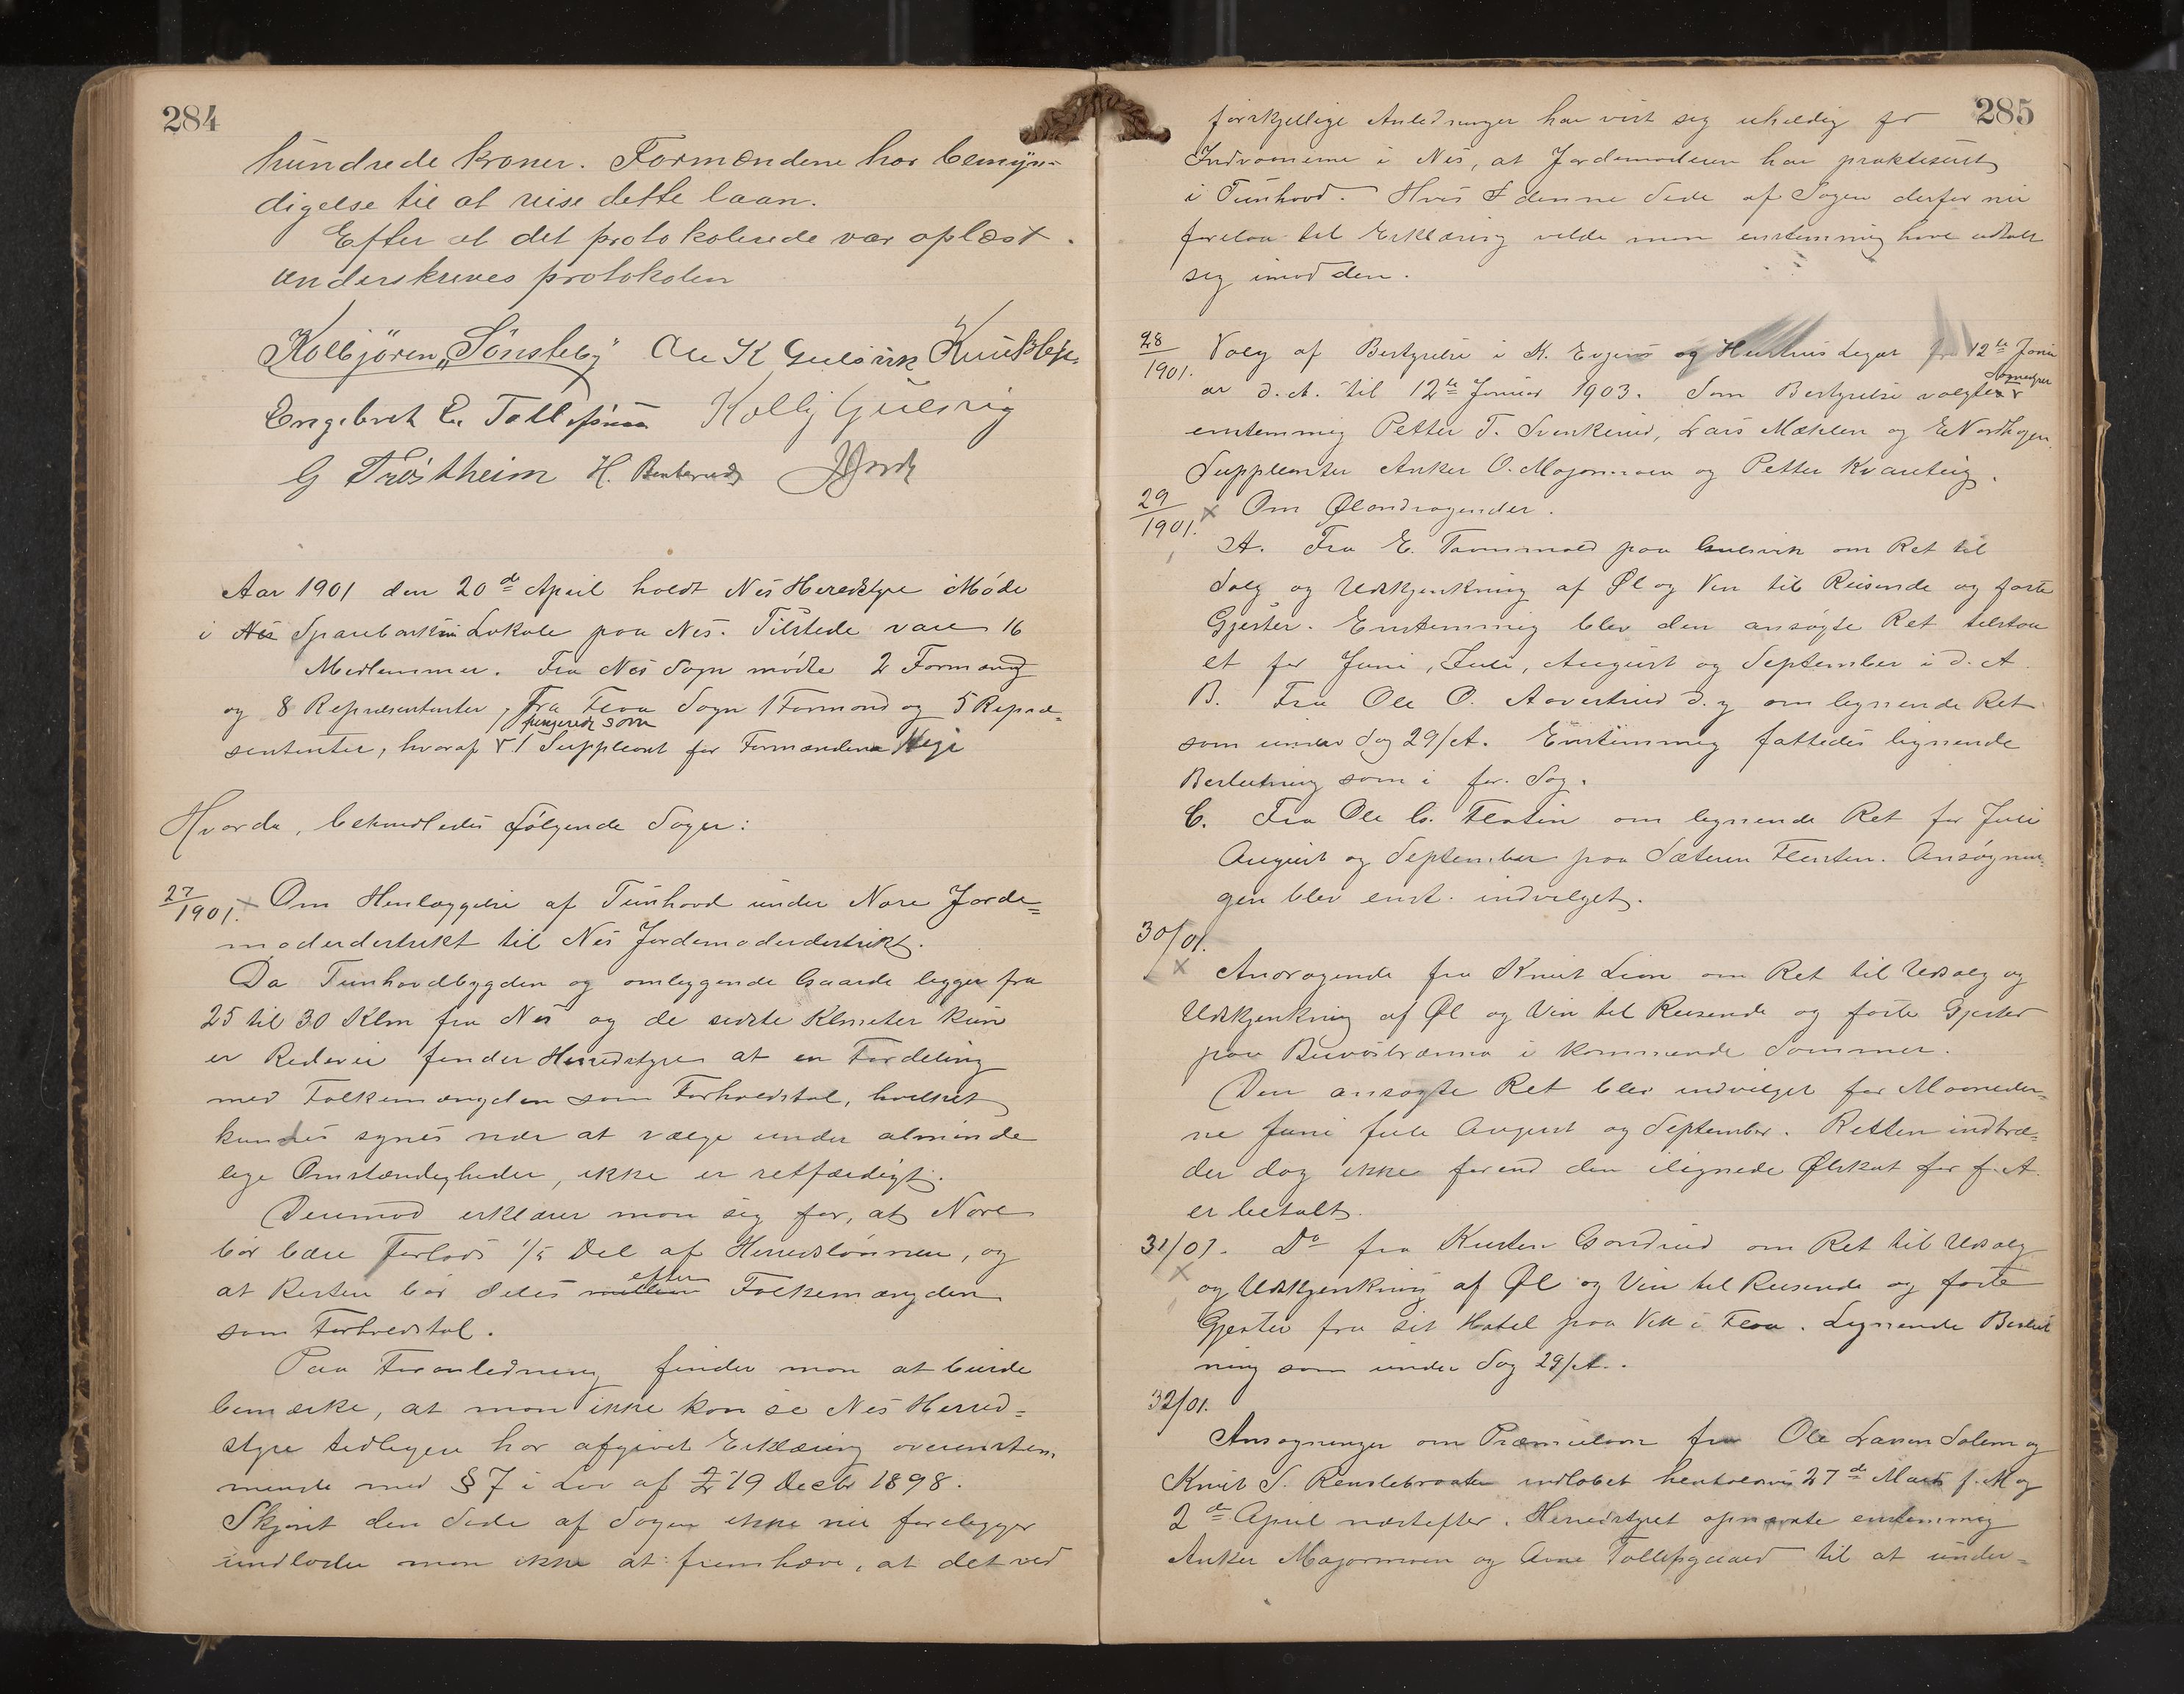 284
hundrede kroner. Formændene har bemyn-
digelse til at reise dette laan.
Efter at det protokolerede var oplæst.
underskrives protokolen
Kolbjören „Sönsteby" Ole K Gulsvik Knut
Engebret E. Tollefsrud Kolbj Gulsvig
G Tröstheim H. Benterud
Aar 1901 den 20de April holdt Nes Heredstyre Möde
i Nes Sparebanks Lokale paa Nes. Tilstede vare 16
Medlemmer. Fra Nes Sogn mödte 2 Formænd
og 8 Repræsentanter, Fra Flaa Sogn 1 Formand og 5 Repræ-
fungerede som
sentanter, hvoraf 1 Suppleant for Formændene
Hvorda, behandledes følgende Sager:
27/1901. x Om Henlæggelse af Tunhovd under Nore Jorde=
moderdistrikt til Nes Jordemoderdistrikt.
Da Tunhovdbygden og omliggende Gaarde ligger fra
25 til 30 Klm fra Nes og de sidste Klmeter kun
er Rideveie finder Herredstyret at en Fordeling
med Folkemængden som Forholdstal, hvilket
kundes synes nær at vælge under alminde
lige Omstændigheder, ikke er retfærdigt.
Derimod erklærer man sig for, at Nore
bör bære forlods 1/5 Del af Herredslönnen, og
efter
at Resten bör deles mellem Folkemængden
som Forholdstal.
Paa Foranledning finder man at burde
bemærke, at man ikke kan se Nes Herred=
styre tidligere har afgivet Erklæring overenstem,
mende med § 7 i Lov af 19 Decbr 1898.
Skjönt den Side af Sagen ikke nu foreligger
undlader man ikke at fremhæve, at det ved
285
forskjellige Anledninger har vist sig uheldig for
Indvaanerne i Nes, at Jordemoderen har praktiseret
i Tunhovd. Hvis denne Side af Sagen derfor nu
forelaa til Erklæring vilde man enstemmig have udtalt
sig imod den.
28/1901. Valg af Bestyrelse i K. Evjens og Hustrus Legat fra 12te Janu
ar d. A. til 12te Januar 1903. Som Bestyrelse valgtes
enstemmig Petter T. Svenkerud, Lars Mæhlen og E Nordhagen
Suppleanter Anker O. Majormoen og Petter Kvarteig.
29/1901. x Om Ølandragender.
A. Fra E. Tannmald paa Gulsvik om Ret til
Salg og Udskjenkning af Øl og Vin til Reisende og faste
Gjester. Enstemmig blev den ansögte Ret tilstaa
et for Juni, Juli, August og September i d. A.
B. Fra Ole O. Aavestrud d. y om lignende Ret
som under Sag 29/A. Enstemmig fattedes lignende
Beslutning som i for. Sag.
C. Fra Ole G. Flatin om lignende Ret for Juli
August og September paa Sæteren Flenten. Ansögnin-
gen blev enst. indvilget.
30/01.
x Andragende fra Knut Lien om Ret til Udsalg og
Udskjenkning af Øl og Vin til Reisende og faste Gjester
paa i kommende Sommer.
Den ansögte Ret blev indvilget for Maaneder-
ne Juni Juli August og September. Retten indtræ-
der dog ikke forend den ilignede Ølskat for f. A.
er betalt.
31/01. Do fra Kirsten Gandrud om Ret til Udsalg
x og Udskjenkning af Øl og Vin til Reisende og faste
Gjester fra sit Hotel paa Vik i Flaa. Lignende Beslut
ning som under Sag 29/A.
32/01.
Ansogninger om Præmielaan fra Ole Larsen Solem og
Knut S. Renslebraaten indlöbet henholdsvis 27de Marts f. M og
2den April næstefter. Herredstyret opnævnte enstemmig
Anker Majormoen og Arne Tollefsgaard til at under=